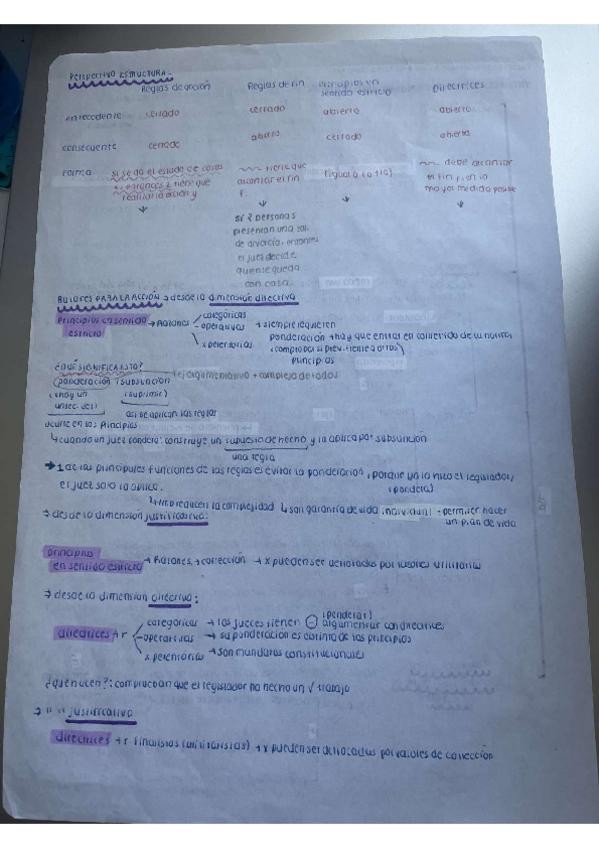 PERSPECTIVA ESTRUCTURAL
Reglas de acción Reglas de fin Principios en sentido estricto Directrices
antecedente cerrado cerrado abierto abierto
consecuente cerrado abierto cerrado abierto
Forma si se da el estado de cosas X, entonces Z tiene que realizar la acción y
tiene que alcanzar el fin F.
debe alcanzar el fin F en la mayor medida posible
Si 2 personas
presentan una sol.
de divorcio, entonces
el juez decide
quien se queda
con casa.
RAZONES PARA LA ACCIÓN → desde la dimensión directiva
Principios en sentido estricto → Razones
categóricas
- operativas → siempre requieren
ponderación → hay que entrar en contenido de la norma
x perentorias (comprobar si prev. frente a otros) principios
¿QUÉ SIGNIFICA ESTO?
ej argumentativo + compleja de todos
ponderación / subsunción
(suprimir)
así se aplican las reglas
ocurre en los Principios
↳ cuando un juez pondera: construye un supuesto de hecho y la aplica por subsunción
una regla
→ 1 de las principales funciones de las reglas es evitar la ponderación, porque ya la hizo el legislador,
el juez solo la aplica. (pondera)
reducen la complejidad ↳ son garantía de vida individual - permiten hacer
un plan de vida
→ desde la dimensión justificativa:
principios
en sentido estricto → Razones, + corrección → x pueden ser derrotados por razones utilitarias
→ desde la dimensión directiva:
directrices → r
categóricas → los jueces tienen ⊖ argumentar con directrices (ponderar)
- operativas → su ponderación es distinto de los principios
x perentorias → son mandatos constitucionales
¿qué hacen?: comprueban que el legislador ha hecho un √ trabajo
→ " " justificativa
directrices → r finalistas (utilitaristas) → x pueden ser derrotadas por valores de corrección